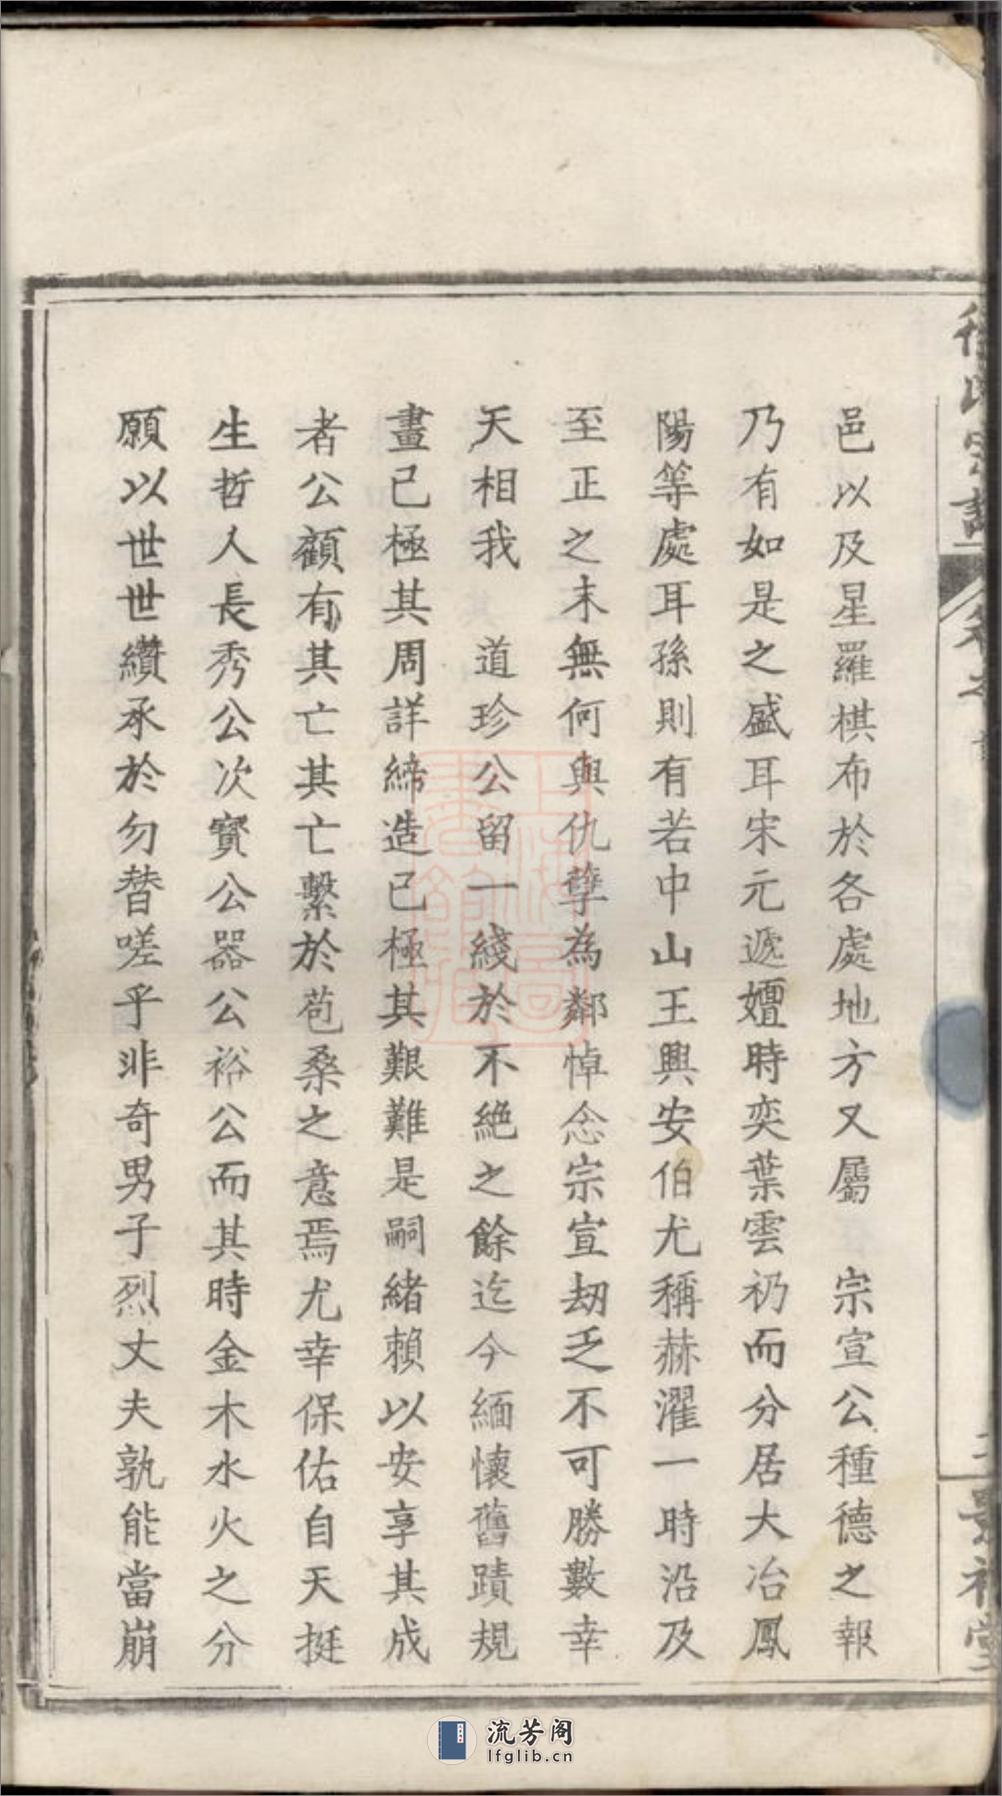 邑以及星羅棋布於各處地方又屬　宗宣公種德之報
乃有如是之盛耳宋元遞嬗時奕葉雲礽而分居大冶鳳
陽等處耳孫則有若中山王興安伯尤稱赫濯一時沿及
至正之末無何與仇孽為鄰悼念宗宣劫乏不可勝數幸
天相我　道珍公留一綫於不絶之餘迄今緬懷舊蹟規
畫已極其周詳締造已極其艱難是嗣緒賴以安享其成
者公顧有其亡其亡繫於苞桑之意焉尤幸保佑自天挺
生哲人長秀公次寳公器公裕公而其時金木水火之分
願以世世纘承於勿替嗟乎非奇男子烈丈夫孰能當崩
流芳阁
lfglib.cn